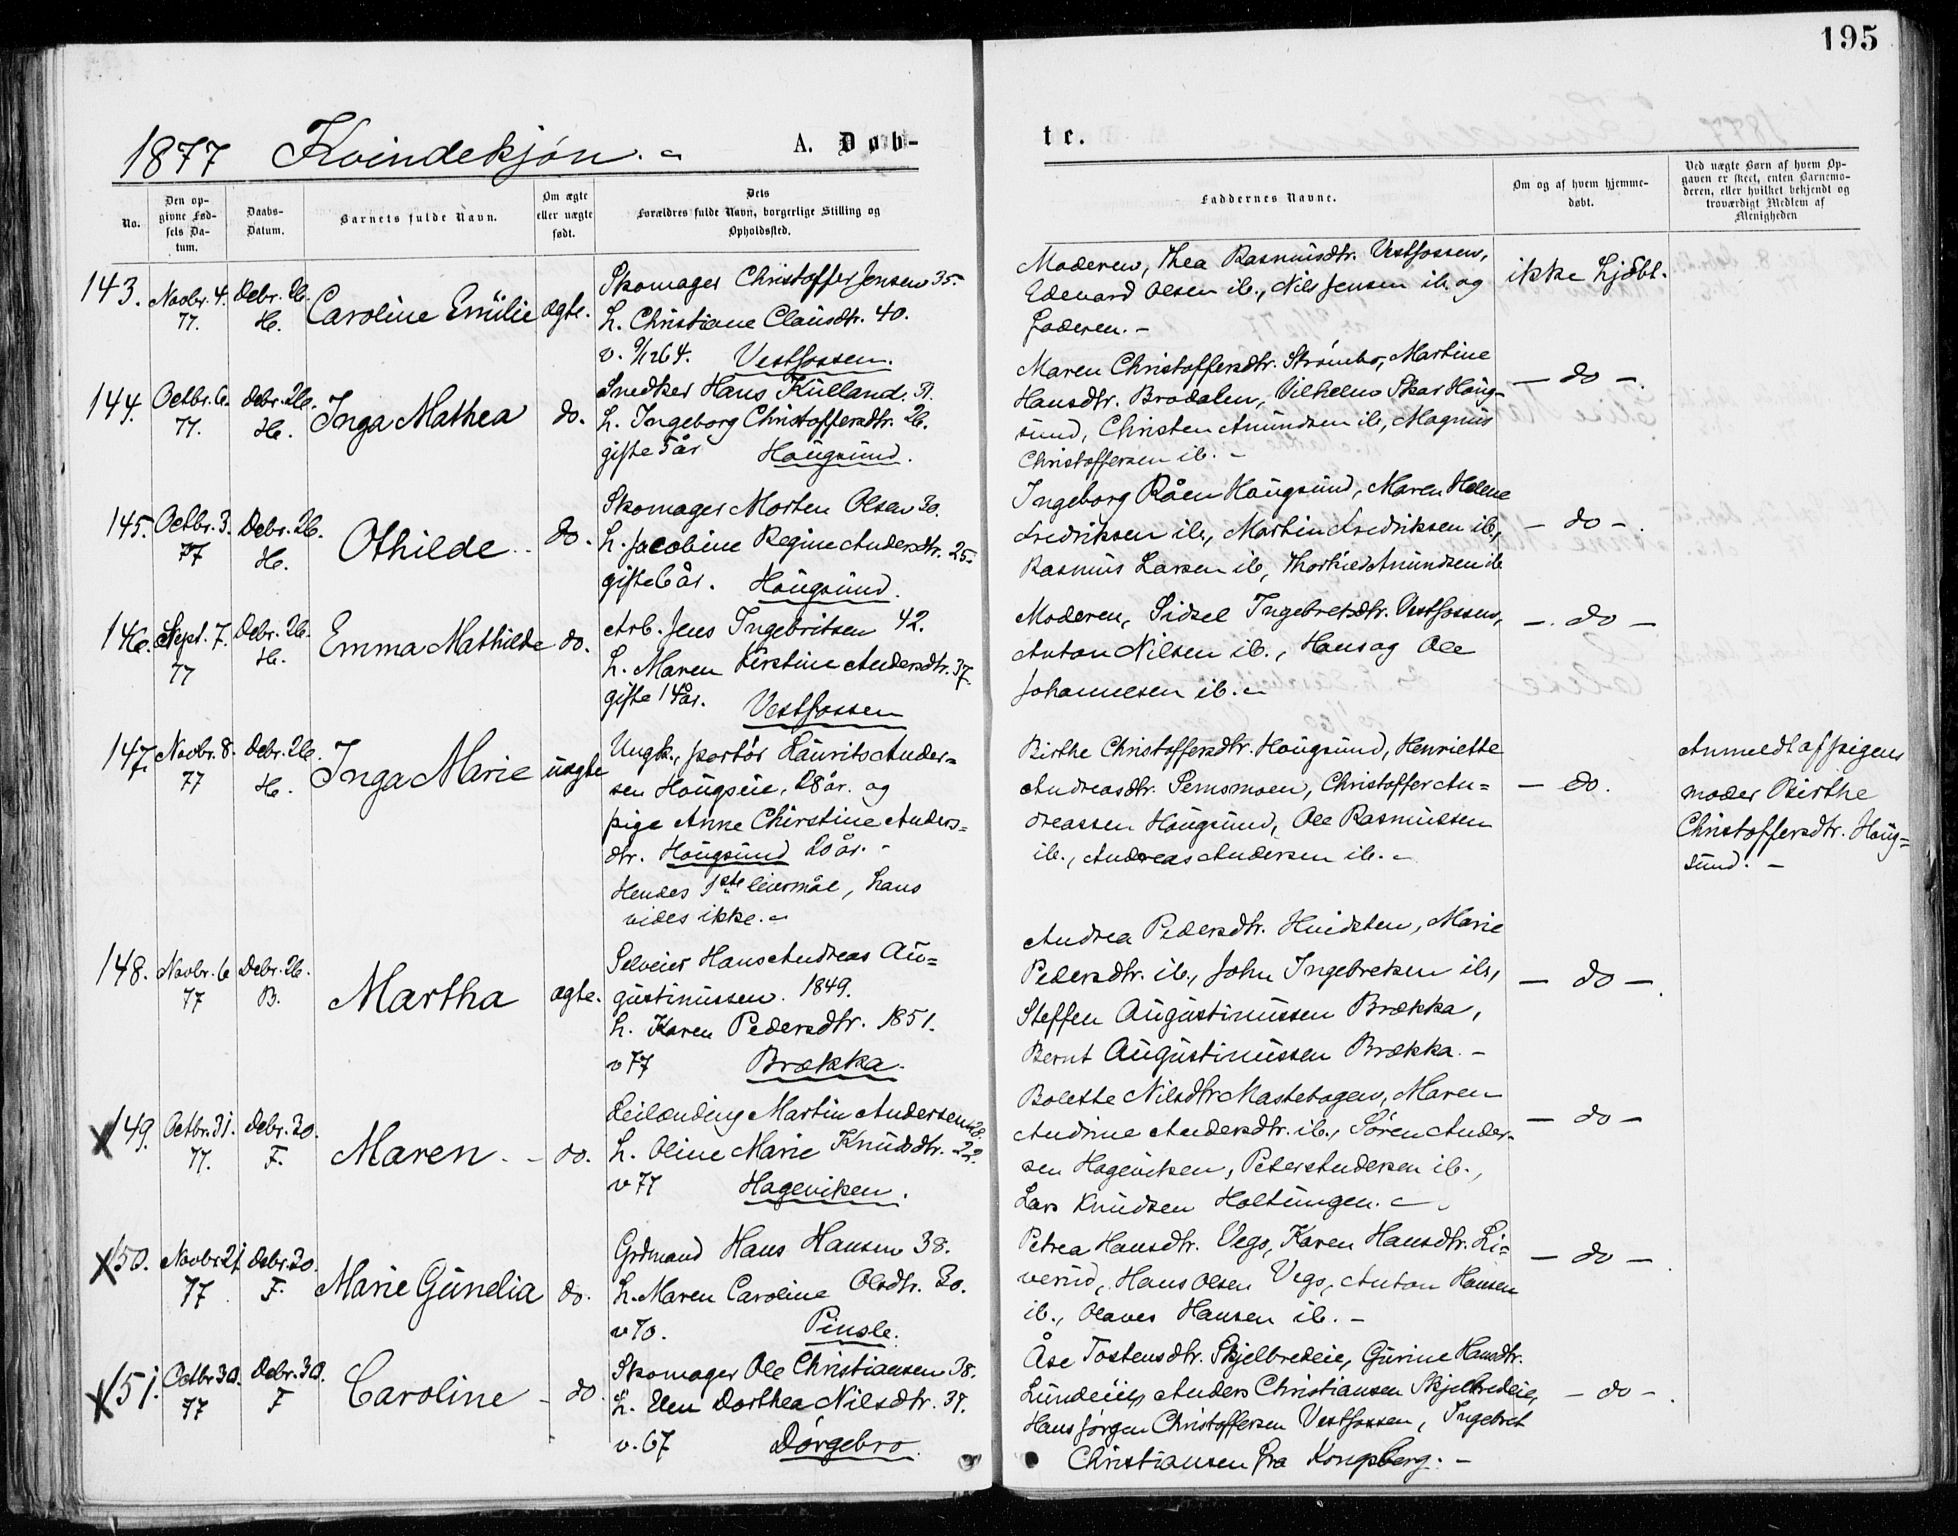 195
1877 Kvindekjøn. A. Døb-
te.
No.
Den op-
givne Fød-
sels Da-
tum.
Daabs-
Datum.
Barnets fulde Navn.
Om ægte
eller uægte
født.
Dets
Forældres fulde Navn, borgerlige Stilling og
Opholdssted.
Faddernes Navne.
Om og af hvem hjemme-
døbt.
Ved uægte Børn af hvem Op-
gaven er skeet, enten Barnemo-
deren, eller hvilket bekjendt og
troværdigt Medlem af
Menigheden
143. Novbr. 4. 77. Debr. 26. H. Caroline Emilie ægte.
Skomager Christoffer Jensen 35.
h. Christiane Clausdtr. 40.
v. 64. Vestfossen.
Moderen, Thea Rasmusdtr. Vestfossen,
Edevard Olsen ib., Nils Jensen ib. og
Faderen. -
ikke hjdbt.
144. Octbr. 6. 77. Debr. 26. H. Inga Mathea do.
Snedker Hans Kulland. 31.
h. Ingeborg Christoffersdtr. 26.
gifte 5 år Hougsund.
Maren Christoffersdtr. Strømbo, Martine
Hansdtr. Brodalen, Vilhelm Skar Houg-
sund, Christen Amundsen ib., Magnus
Christoffersen ib. -
- do -.
145. Octbr. 3. 77 Debr. 26. H. Othilde do.
Skomager Morten Olsen 30.
h. Jacobine Regine Andersdtr. 25.
gifte 6 år. Hougsund.
Ingeborg Råen Hougsund, Maren Helene
Fredriksen ib., Martin Fredriksen ib.,
Rasmus Larsen ib., Thorkild Amundsen ib
- do -.
146. Sept. 7. 77 Debr. 26. H. Emma Mathilde do.
Arb. Jens Ingebritsen 42.
h. Maren Kirstine Andersdtr. 37.
gifte 14 år. Vestfossen
Moderen, Sidsel Ingebretsdtr. Vestfossen,
Anton Nilsen ib., Hans og Ole
Johannesen ib. -
- do -
147. Novbr. 8. 77 Debr. 26. H. Inga Marie uægte
Ungk., portør Laurits Ander=
sen Hougseie, 28 år. og
pige Anne Chirstine Anders=
dtr. Hougsund 20 år. -
Hendes 1ste leiermål, hans
vides ikke. -
Birthe Christoffersdtr. Hougsund, Henriette
Andreasdtr. Semsmoen, Christoffer An=
dreassen Hougsund, Ole Rasmussen
ib., Andreas Andersen ib. -
- do.
Anmeldt af pigens
moder Birthe
Christoffersdtr. Houg=
sund. -
148. Novbr. 6 77 Debr. 26. B. Martha ægte.
Selveier Hans Andreas Au=
gustinussen. 1849.
h. Karen Pedersdtr. 1851.
v 77 Brækka.
Andrea Pedersdtr. Hvidsten, Marie
Pedersdtr. ib., John Ingebretsen ib.,
Steffen Augustinussen Brækka,
Bernt Augustinussen Brækka. -
- do -.
X 149. Octbr. 31. 77. Debr. 30. F. Maren. - do.
Leilænding Martin Andersen 28.
h. Oline Marie Knudsdtr. 22.
v 77 Hageviken.
Bolette Nilsdtr Mastebogen, Maren
Andrine Andersdtr. ib., Søren Ander-
sen Hageviken, Peter Andersen ib.,
Lars Knudsen Holtungen. -
- do -
X 150. Novbr 21. 77 Debr. 30. F. Marie Gunelia do.
Grdmand Hans Hansen 38.
h. Maren Caroline Olsdtr. 30.
v 70. Pinsle.
Petrea Hansdtr. Vego, Karen Hansdtr. Li=
verud, Hans Olsen Vego, Anton Hansen
ib., Olaves Hansen ib. -
- do -.
X 151. Octbr 30. 77 Debr. 30. F Caroline - do
Skomager Ole Christiansen 38.
h. Elen Dorthea Nilsdtr. 37.
v. 67 Dørgebro.
Åse Tostensdtr. Skjelbredeie, Gurine Hansdtr.
Lundeeie, Anders Christiansen Skjelbredeie,
Hans Jørgen Christoffersen Vestfossen, Ingebret
Christiansen fra Kongsberg. -
- do -.